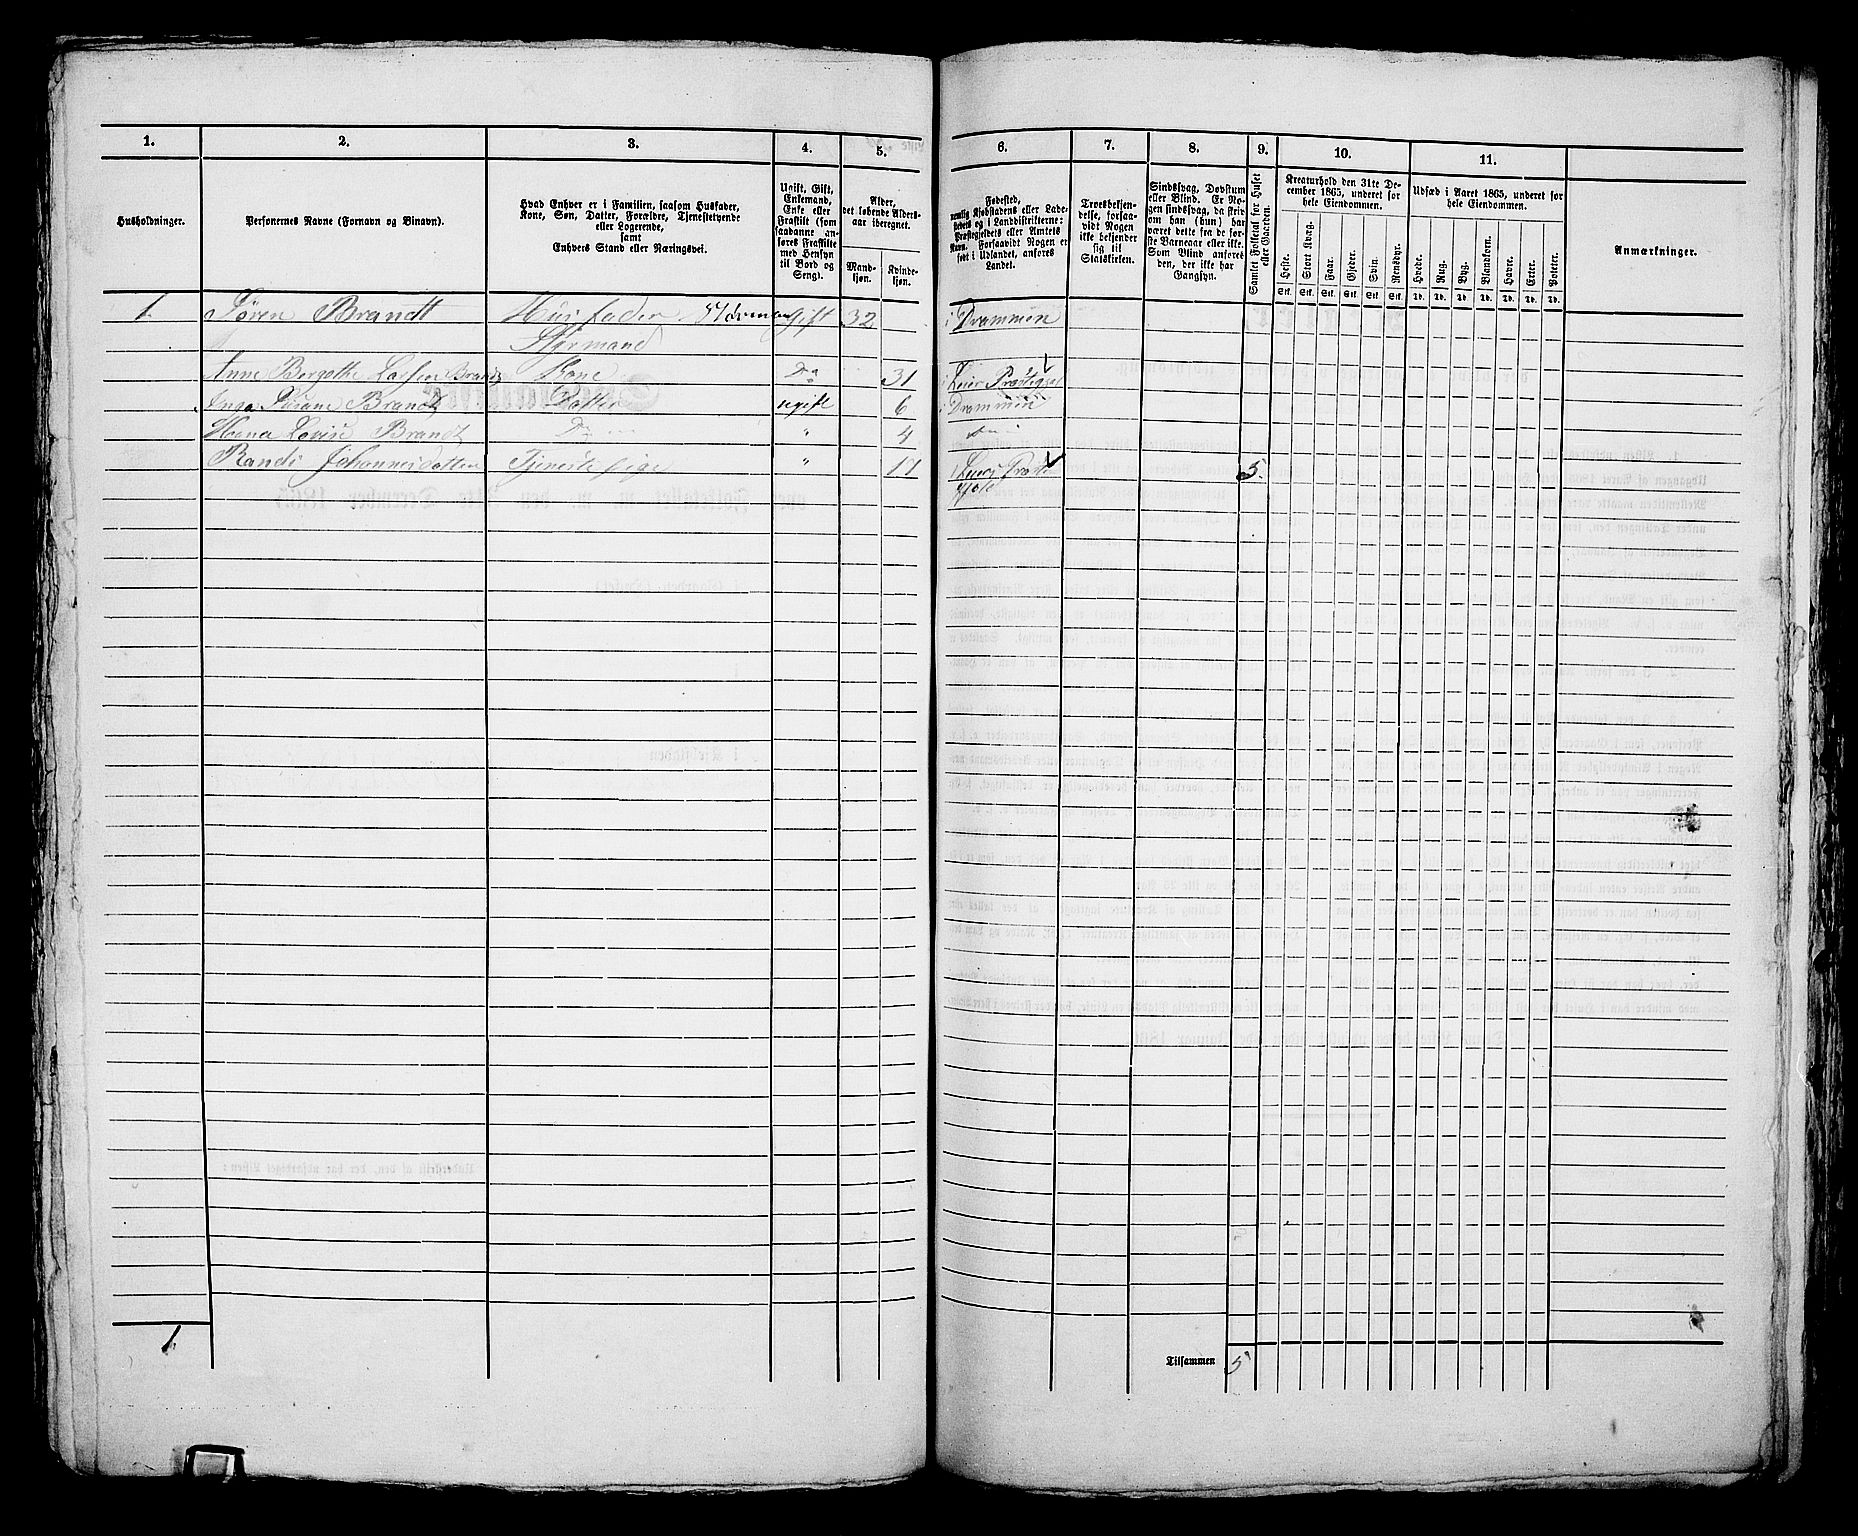 1. 2. 3. 4. 5. 6. 7. 8. 9. 10. 11.
Husholdninger.
Personernes Navne (Fornavn og Binavn).
Hvad Enhver er i Familien, saasom Husfader,
Kone, Søn, Datter, Forældre, Tjenestetyende
eller Logerende,
samt
Enhvers Stand eller Næringsvei.
Ugift, Gift,
Enkemand,
Enke eller
Fraskilt (som
saadanne an-
føres Fraskilte
med Hensyn
til Bord og
Seng).
Alder,
det løbende Alders-
aar iberegnet.
Mand-
kjøn.
Kvinde-
kjøn.
Fødested,
nemlig Kjøbstadens eller Lade-
stedets og i Landdistrikterne:
Præstegjeldets eller Amtets
Navn. Forsaavidt Nogen er
født i Udlandet, anføres
Landet.
Troesbekjen-
delse, forsaa-
vidt Nogen
ikke bekjender
sig til
Statskirken.
Sindssvag, Døvstum
eller Blind. Er No-
gen sindssvag, da skriv
om han (hun) har
været dette fra de før-
ste Barneaar eller ikke.
Som Blind anføres
den, der ikke har
Gangsyn.
Samlet Folketal for Huset
eller Gaarden.
Kreaturhold den 31te De-
cember 1865, underet for
hele Eiendommen.
Heste. Stort Kvæg. Faar. Gjeder. Svin. Rensdyr.
Stk. Stk. Stk. Stk. Stk. Stk.
Udsæd i Aaret 1865, underet for
hele Eiendommen.
Hvede. Rug. Byg. Blandkorn. Havre. Erter. Poteter.
Td. Td. Td. Td. Td. Td. Td.
Anmærkninger.
1 Søren Brandt Husfader Gift 32 Drammen
Styrmand
Anne Bergethe Larsen Brandt Kone Do 31 Lier
Inga Brandt Datter ugift 6 Drammen
Lovise Brandt Do " 4
Randi Johannesdatter Tjeneste Pige " 17 5
1
Tilsammen 5